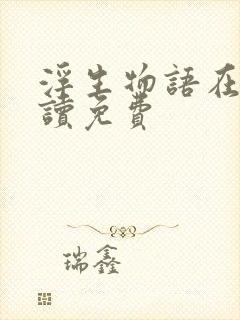 淫生物語在
讀免費
瑞鑫